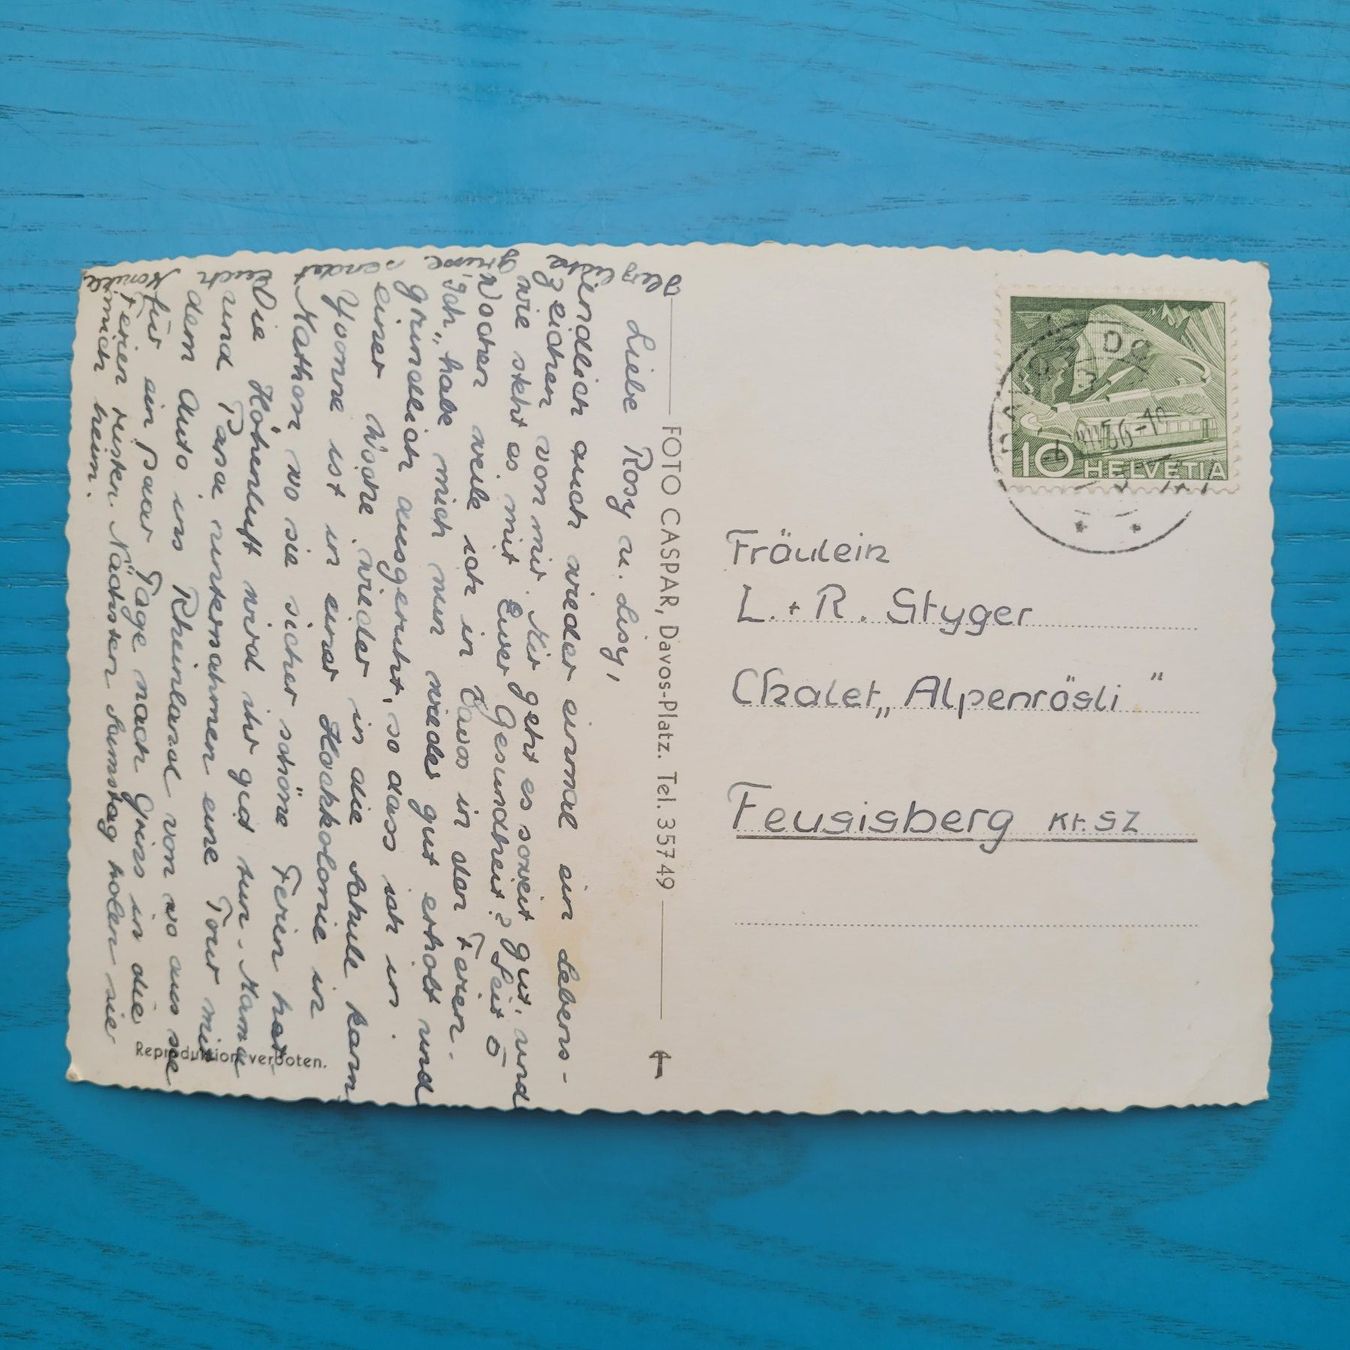 Liebe Rosy u. Lisy,
endlich auch wieder einmal ein Lebens-
zeichen von mir. Mir geht es soweit gut, und
wie steht es mit Euer Gesundheit? Seit 5
Wochen weile ich in Davos in den Ferien.
Ich habe mich nun wieder gut erholt und
gründlich ausgeruht, so dass ich in
einer Woche wieder in die Schule kann
Yvonne ist in einer Kochkolonie in
Mathon wo sie sicher schöne Ferin hat
Die Höhenluft wird ihr gut tun. Mama
und Papa unternahmen eine Tour mit
dem Auto ins Rheinland von wo aus sie
für ein paar Tage nach Gniss in die
Ferien reisten. Nächsten Samstag holen sie
mich heim.
Herzliche
Grüsse
sendet
Euch
FOTO CASPAR, Davos-Platz. Tel. 35749
Reproduktion verboten.
10 HELVETIA
Fräulein
L. + R. Styger
Chalet „Alpenrösli"
Feusisberg Kt. SZ